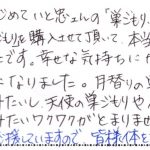 じめていと忠さんの「巣ごもり、
ごもりを購入させて頂いて、本当
です。幸せな気持ちに
になりました。月替りの巣
みたいし、天使の巣ごもりや
みたいワクワクがとまりませ
援していますので、皆様体を